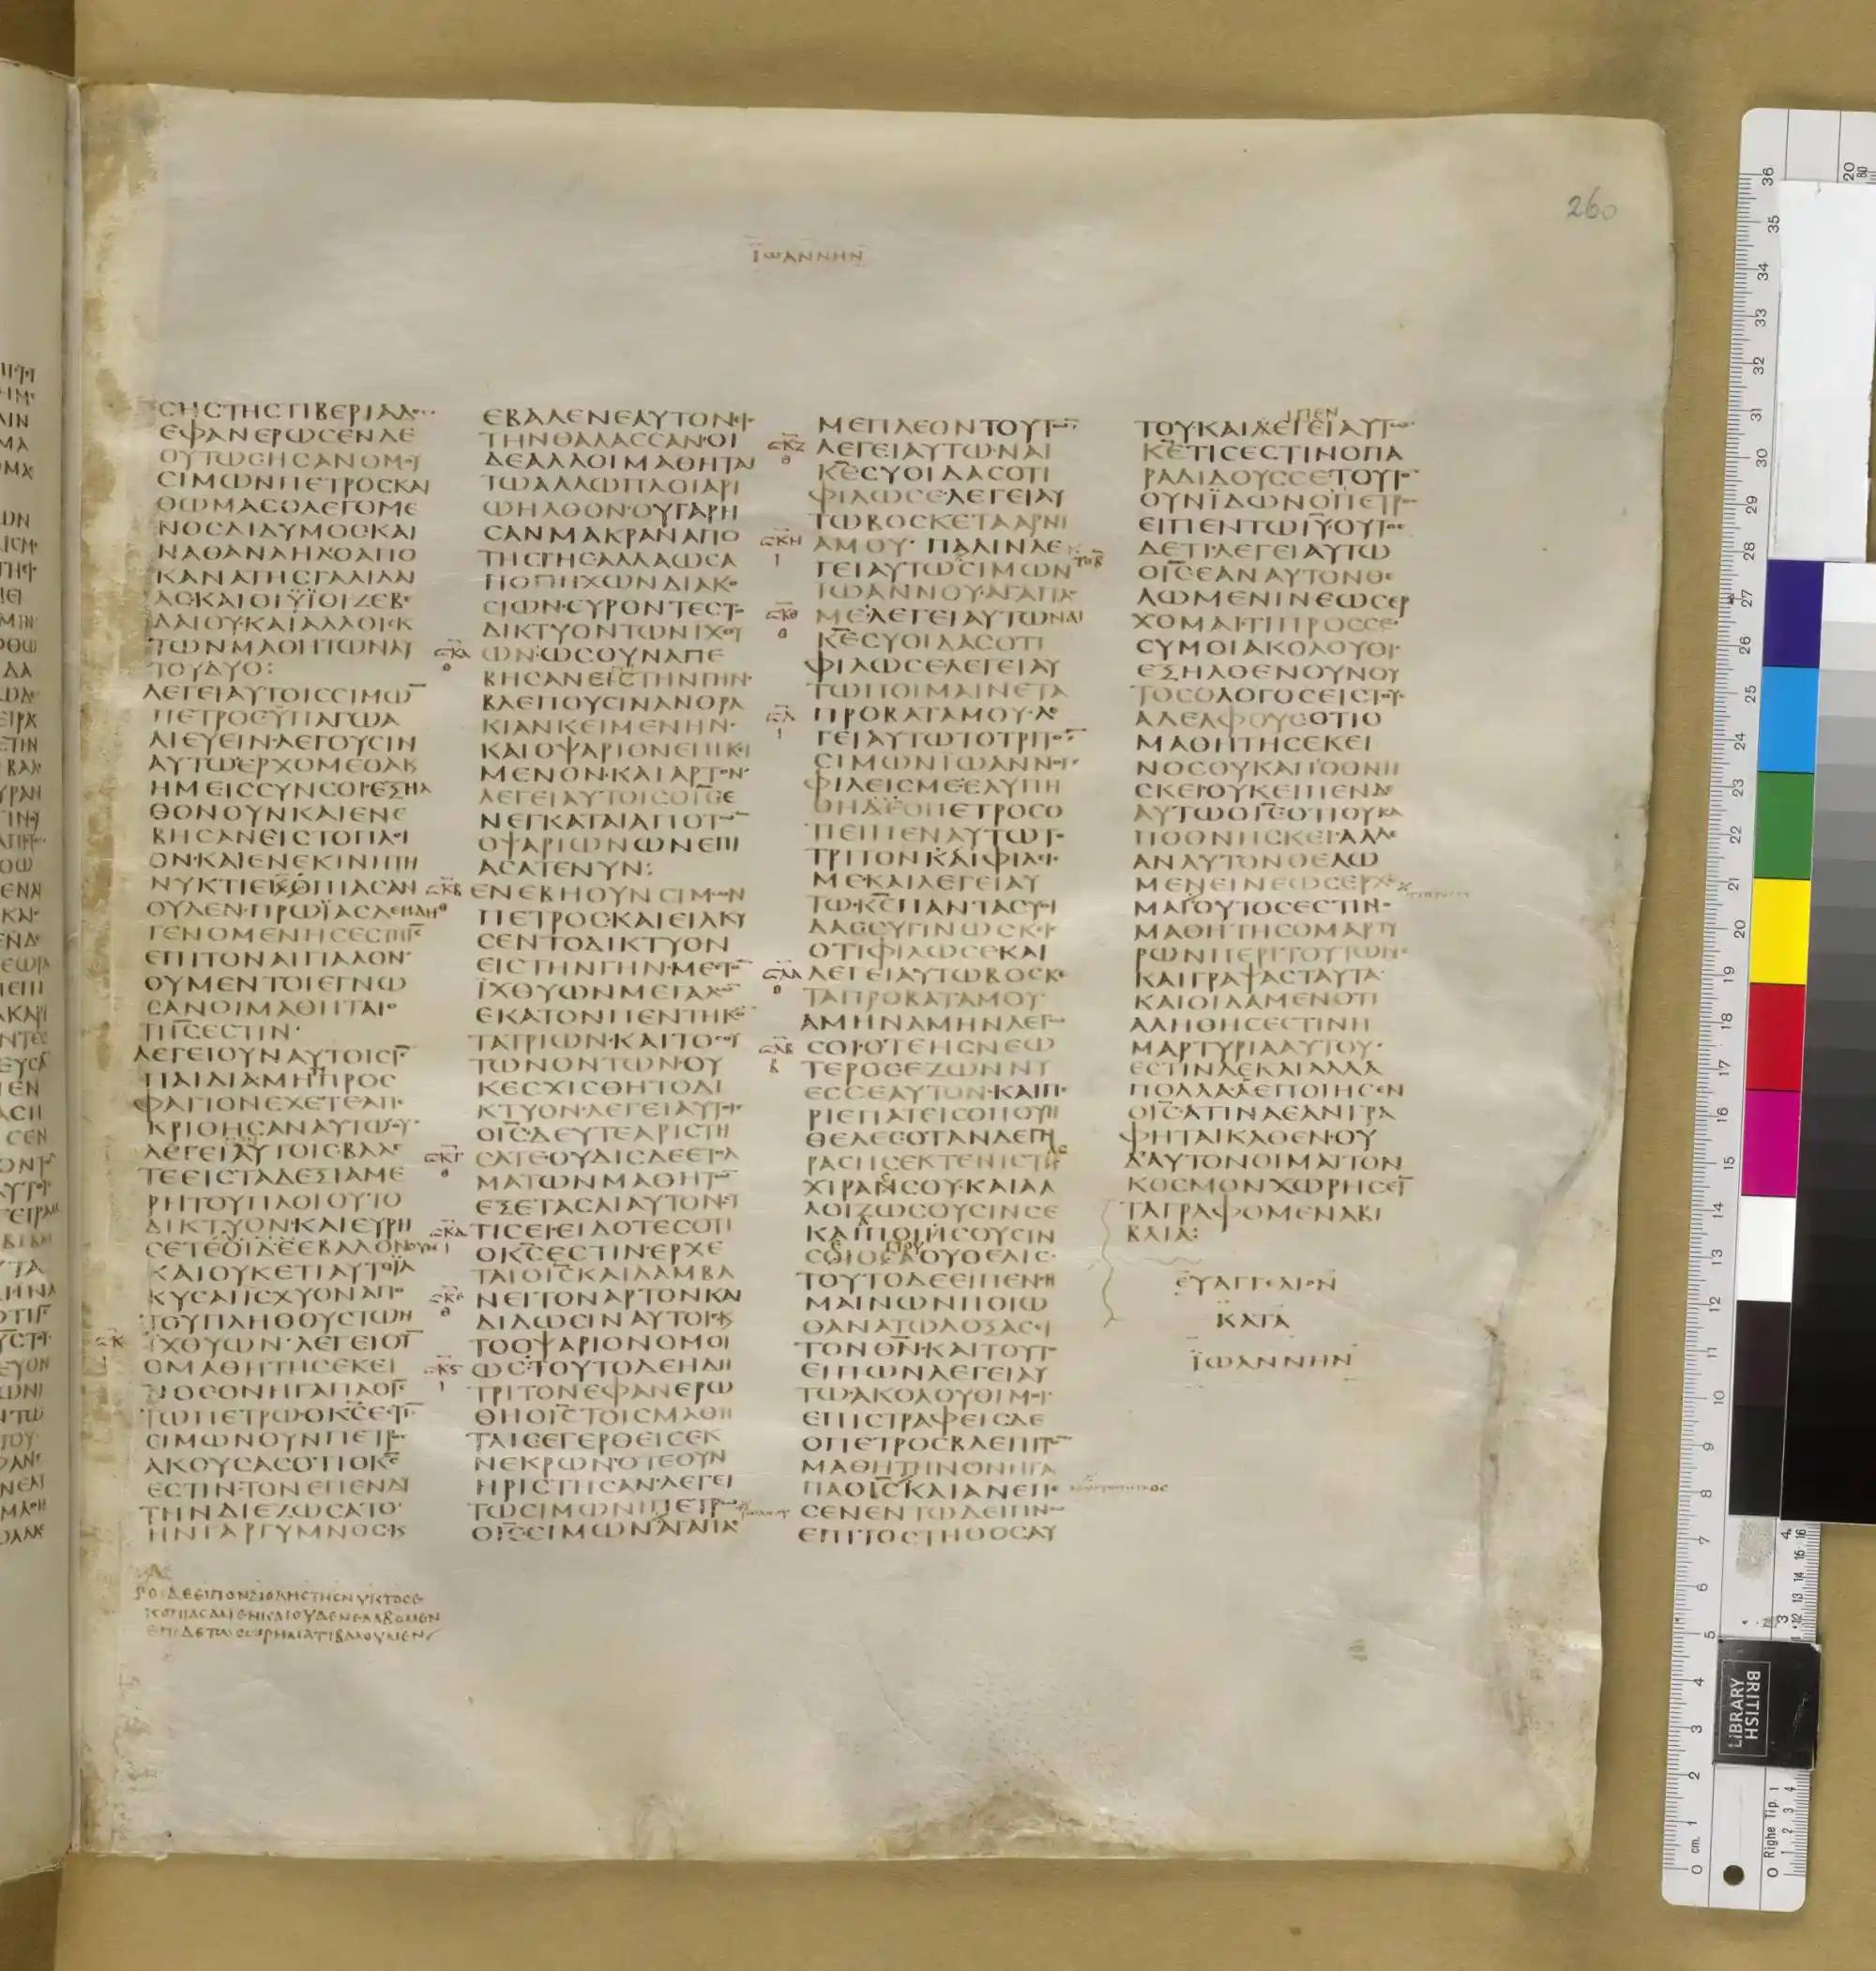 ΪΩΑΝΝΗΝ
260
CΗCΤΗCΤΙΒΕΡΙΑΔΟC
ΕΦΑΝΕΡΩCΕΝΔΕ
ΟΥΤΩCΗCΑΝΟΜΟΥ
CΙΜΩΝΠΕΤΡΟCΚΑΙ
ΘΩΜΑCΟΛΕΓΟΜΕ
ΝΟCΔΙΔΥΜΟCΚΑΙ
ΝΑΘΑΝΑΗΛΟΑΠΟ
ΚΑΝΑΤΗCΓΑΛΙΛΑΙ
ΑC·ΚΑΙΟΙΫΪΟΙΖΕΒΕ
ΔΑΙΟΥ·ΚΑΙΑΛΛΟΙΕΚ
ΤΩΝΜΑΘΗΤΩΝΑΥ
ΤΟΥΔΥΟ:
ΛΕΓΕΙΑΥΤΟΙCCΙΜΩ̅
ΠΕΤΡΟCΫΠΑΓΩΑ
ΛΙΕΥΕΙΝ·ΛΕΓΟΥCΙΝ
ΑΥΤΩΕΡΧΟΜΕΘΑΚΑΙ
ΗΜΕΙCCΥΝCΟΙ·ΕΞΗΛ
ΘΟΝΟΥΝΚΑΙΕΝΕ
ΒΗCΑΝΕΙCΤΟΠΛΟΙ
ΟΝ·ΚΑΙΕΝΕΚΙΝΗΤΗ
ΝΥΚΤΙΕΚΟΠΙΑCΑΝ
ΟΥΔΕΝ·ΠΡΩΪΑCΔΕΗΔΗ
ΓΕΝΟΜΕΝΗCΕCΤΗΙC̅
ΕΠΙΤΟΝΑΙΓΙΑΛΟΝ·
ΟΥΜΕΝΤΟΙΕΓΝΩ
CΑΝΟΙΜΑΘΗΤΑΙΟ
ΤΙΙC̅ΕCΤΙΝ·
ΛΕΓΕΙΟΥΝΑΥΤΟΙCΙC̅
ΠΑΙΔΙΑΜΗΠΡΟC
ΦΑΓΙΟΝΕΧΕΤΕΑΠΕ
ΚΡΙΘΗCΑΝΑΥΤΩΟΥ·
ΛΕΓΕΙΑΥΤΟΙC·ΒΑΛΕ
ΤΕΕΙCΤΑΔΕΞΙΑΜΕ
ΡΗΤΟΥΠΛΟΙΟΥΤΟ
ΔΙΚΤΥΟΝ·ΚΑΙΕΥΡΗ
CΕΤΕΟΙΔΕΕΒΑΛΟΝΟΥΝ
ΚΑΙΟΥΚΕΤΙΑΥΤΟΕΛ
ΚΥCΑΙΙCΧΥΟΝΑΠΟ
ΤΟΥΠΛΗΘΟΥCΤΩΝ
ΪΧΘΥΩΝ·ΛΕΓΕΙΟΥ̅
ΟΜΑΘΗΤΗCΕΚΕΙ
ΝΟCΟΝΗΓΑΠΑΟΙC̅
ΤΩΠΕΤΡΩ·ΟΚC̅ΕCΤΙ̅
CΙΜΩΝΟΥΝΠΕΤΡΟC
ΑΚΟΥCΑCΟΤΙΟΚC̅
ΕCΤΙΝ·ΤΟΝΕΠΕΝΔΥ
ΤΗΝΔΙΕΖΩCΑΤΟ·
ΗΝΓΑΡΓΥΜΝΟCΚΑΙ
ΟΙΔΕΕΙΠΟΝΔΙΟΛΗCΤΗCΝΥΚΤΟCΕ
ΚΟΠΙΑCΑΜΕΝΚΑΙΟΥΔΕΝΕΛΑΒΟΜΕΝ
ΕΠΙΔΕΤΩCΩΡΗΜΑΤΙΒΑΛΟΥΜΕΝ
ΕΒΑΛΕΝΕΑΥΤΟΝΕΙC
ΤΗΝΘΑΛΑCCΑΝ·ΟΙ
ΔΕΑΛΛΟΙΜΑΘΗΤΑΙ
ΤΩΑΛΛΩΠΛΟΙΑΡΙ
ΩΗΛΘΟΝ·ΟΥΓΑΡΗ
CΑΝΜΑΚΡΑΝΑΠΟ
ΤΗCΓΗCΑΛΛΑΩCΑ
ΠΟΠΗΧΩΝΔΙΑΚΟ
CΙΩΝ·CΥΡΟΝΤΕCΤΟ
ΔΙΚΤΥΟΝΤΩΝΙΧΘΥ
ΩΝ·ΩCΟΥΝΑΠΕ
ΒΗCΑΝΕΙCΤΗΝΓΗΝ·
ΒΛΕΠΟΥCΙΝΑΝΘΡΑ
ΚΙΑΝΚΕΙΜΕΝΗΝ·
ΚΑΙΟΨΑΡΙΟΝΕΠΙΚΙ
ΜΕΝΟΝ·ΚΑΙΑΡΤΟΝ·
ΛΕΓΕΙΑΥΤΟΙCΟΙC̅Ε
ΝΕΓΚΑΤΑΙΑΠΟΤΩ̅
ΟΨΑΡΙΩΝΩΝΕΠΙ
ΑCΑΤΕΝΥΝ:
ΕΝΕΒΗΟΥΝCΙΜΩΝ
ΠΕΤΡΟCΚΑΙΕΙΛΚΥ
CΕΝΤΟΔΙΚΤΥΟΝ
ΕΙCΤΗΝΓΗΝ·ΜΕCΤΟ̅
ΪΧΘΥΩΝΜΕΓΑΛΩ̅
ΕΚΑΤΟΝΠΕΝΤΗΚΟ̅
ΤΑΤΡΙΩΝ·ΚΑΙΤΟCΟΥ
ΤΩΝΟΝΤΩΝ·ΟΥ
ΚΕCΧΙCΘΗΤΟΔΙ
ΚΤΥΟΝ·ΛΕΓΕΙΑΥΤΟΙC
ΟΙC̅·ΔΕΥΤΕΑΡΙCΤΗ
CΑΤΕ·ΟΥΔΙCΔΕΕΤΟΛ
ΜΑΤΩΝΜΑΘΗΤΩ̅
ΕΞΕΤΑCΑΙΑΥΤΟΝ·CΥ
ΤΙCΕΙ·ΕΙΔΟΤΕCΟΤΙ
ΟΚC̅ΕCΤΙΝ·ΕΡΧΕ
ΤΑΙΟΙC̅ΚΑΙΛΑΜΒΑ
ΝΕΙΤΟΝΑΡΤΟΝΚΑΙ
ΔΙΔΩCΙΝΑΥΤΟΙCΚΑΙ
ΤΟΟΨΑΡΙΟΝΟΜΟΙ
ΩC·ΤΟΥΤΟΔΕΗΔΗ
ΤΡΙΤΟΝΕΦΑΝΕΡΩ
ΘΗΟΙC̅ΤΟΙCΜΑΘΗ
ΤΑΙCΕΓΕΡΘΕΙCΕΚ
ΝΕΚΡΩΝ·ΟΤΕΟΥΝ
ΗΡΙCΤΗCΑΝ·ΛΕΓΕΙ
ΤΩCΙΜΩΝΙΠΕΤΡΩ
ΟΙC̅CΙΜΩΝΑΓΑΠΑC
ΜΕΠΛΕΟΝΤΟΥΤΩ̅·
ΛΕΓΕΙΑΥΤΩ·ΝΑΙ
ΚΕ̅CΥΟΙΔΑCΟΤΙ
ΦΙΛΩCΕ·ΛΕΓΕΙΑΥ
ΤΩΒΟCΚΕΤΑΑΡΝΙ
ΑΜΟΥ·ΠΑΛΙΝΛΕ
ΓΕΙΑΥΤΩCΙΜΩΝ
ΙΩΑΝΝΟΥ·ΑΓΑΠΑC
ΜΕ·ΛΕΓΕΙΑΥΤΩΝΑΙ
ΚΕ̅CΥΟΙΔΑCΟΤΙ
ΦΙΛΩCΕΛΕΓΕΙΑΥ
ΤΩΠΟΙΜΑΙΝΕΤΑ
ΠΡΟΒΑΤΑΜΟΥ·ΛΕ
ΓΕΙΑΥΤΩΤΟΤΡΙΤΟ̅·
CΙΜΩΝΙΩΑΝΝΟΥ·
ΦΙΛΕΙCΜΕ·ΕΛΥΠΗ
ΘΗΔΕΟΠΕΤΡΟCΟ
ΤΙΕΙΠΕΝΑΥΤΩΤΟ
ΤΡΙΤΟΝΚΑΙΦΙΛΕΙC
ΜΕΚΑΙΛΕΓΕΙΑΥ
ΤΩ·ΚΕ̅ΠΑΝΤΑCΥΟΙ
ΔΑCCΥΓΙΝΩCΚΕΙC
ΟΤΙΦΙΛΩCΕΚΑΙ
ΛΕΓΕΙΑΥΤΩΒΟCΚΕ
ΤΑΠΡΟΒΑΤΑΜΟΥ·
ΑΜΗΝΑΜΗΝΛΕΓΩ
CΟΙ·ΟΤΕΗCΝΕΩ
ΤΕΡΟCΕΖΩΝΝΥ
ΕCCΕΑΥΤΟΝ·ΚΑΙΠΕ
ΡΙΕΠΑΤΕΙCΟΠΟΥΗ
ΘΕΛΕCΟΤΑΝΔΕΓΗ
ΡΑCΗCΕΚΤΕΝΙCΤΗ̅
ΧΙΡΑCΟΥ·ΚΑΙΑΛ
ΛΟΙΖΩCΟΥCΙΝCΕ
ΚΑΙΠΟΙΗCΟΥCΙΝ
CΟΙΟCΑΟΥΘΕΛΙC·
ΤΟΥΤΟΔΕΕΙΠΕΝCΗ
ΜΑΙΝΩΝΠΟΙΩ
ΘΑΝΑΤΩΔΟΞΑCΕΙ
ΤΟΝΘΝ̅·ΚΑΙΤΟΥΤΟ
ΕΙΠΩΝΛΕΓΕΙΑΥ
ΤΩ·ΑΚΟΛΟΥΘΙΜΟΙ·
ΕΠΙCΤΡΑΦΕΙCΔΕ
ΟΠΕΤΡΟCΒΛΕΠΙΤΟ̅
ΜΑΘΗΤΗΝΟΝΗΓΑ
ΠΑΟΙC̅ΚΑΙΑΝΕΠΕ
CΕΝΕΝΤΩΔΕΙΠΝΩ
ΕΠΙΤΟCΤΗΘΟCΑΥ
ΤΟΥ·ΚΑΙΛΕΓΕΙΑΥΤΩ·
ΚΕ̅ΤΙCΕCΤΙΝΟΠΑ
ΡΑΔΙΔΟΥCCΕΤΟΥΤΟ̅
ΟΥΝΪΔΩΝΟΠΕΤΡΟC
ΕΙΠΕΝΤΩΙΥ̅ΟΥΤΟC
ΔΕΤΙ·ΛΕΓΕΙΑΥΤΩ
ΟΙC̅ΕΑΝΑΥΤΟΝΘΕ
ΛΩΜΕΝΙΝΕΩCΕΡ
ΧΟΜΑΙ·ΤΙΠΡΟCCΕ·
CΥΜΟΙΑΚΟΛΟΥΘΙ·
ΕΞΗΛΘΕΝΟΥΝΟΥ
ΤΟCΟΛΟΓΟCΕΙCΤΟΥC
ΑΔΕΛΦΟΥCΟΤΙΟ
ΜΑΘΗΤΗCΕΚΕΙ
ΝΟCΟΥΚΑΠΟΘΝΗ
CΚΕΙ·ΟΥΚΕΙΠΕΝΔΕ
ΑΥΤΩΟΙC̅ΟΤΙΟΥΚΑ
ΠΟΘΝΗCΚΕΙ·ΑΛΛ
ΑΝΑΥΤΟΝΘΕΛΩ
ΜΕΝΕΙΝΕΩCΕΡΧΟ
ΜΑΙ·ΟΥΤΟCΕCΤΙΝΟ
ΜΑΘΗΤΗCΟΜΑΡΤΥ
ΡΩΝΠΕΡΙΤΟΥΤΩΝ·
ΚΑΙΓΡΑΨΑCΤΑΥΤΑ·
ΚΑΙΟΙΔΑΜΕΝΟΤΙ
ΑΛΗΘΗCΕCΤΙΝΗ
ΜΑΡΤΥΡΙΑΑΥΤΟΥ·
ΕCΤΙΝΔΕΚΑΙΑΛΛΑ
ΠΟΛΛΑΑΕΠΟΙΗCΕΝ
ΟΙC̅·ΑΤΙΝΑΕΑΝΓΡΑ
ΦΗΤΑΙΚΑΘΕΝ·ΟΥ
ΔΑΥΤΟΝΟΙΜΑΙΤΟΝ
ΚΟCΜΟΝΧΩΡΗCΕΙ̅
ΤΑΓΡΑΦΟΜΕΝΑΒΙ
ΒΛΙΑ:
ΕΥΑΓΓΕΛΙΟΝ
ΚΑΤΑ
ΪΩΑΝΝΗΝ
BRITISH
LIBRARY